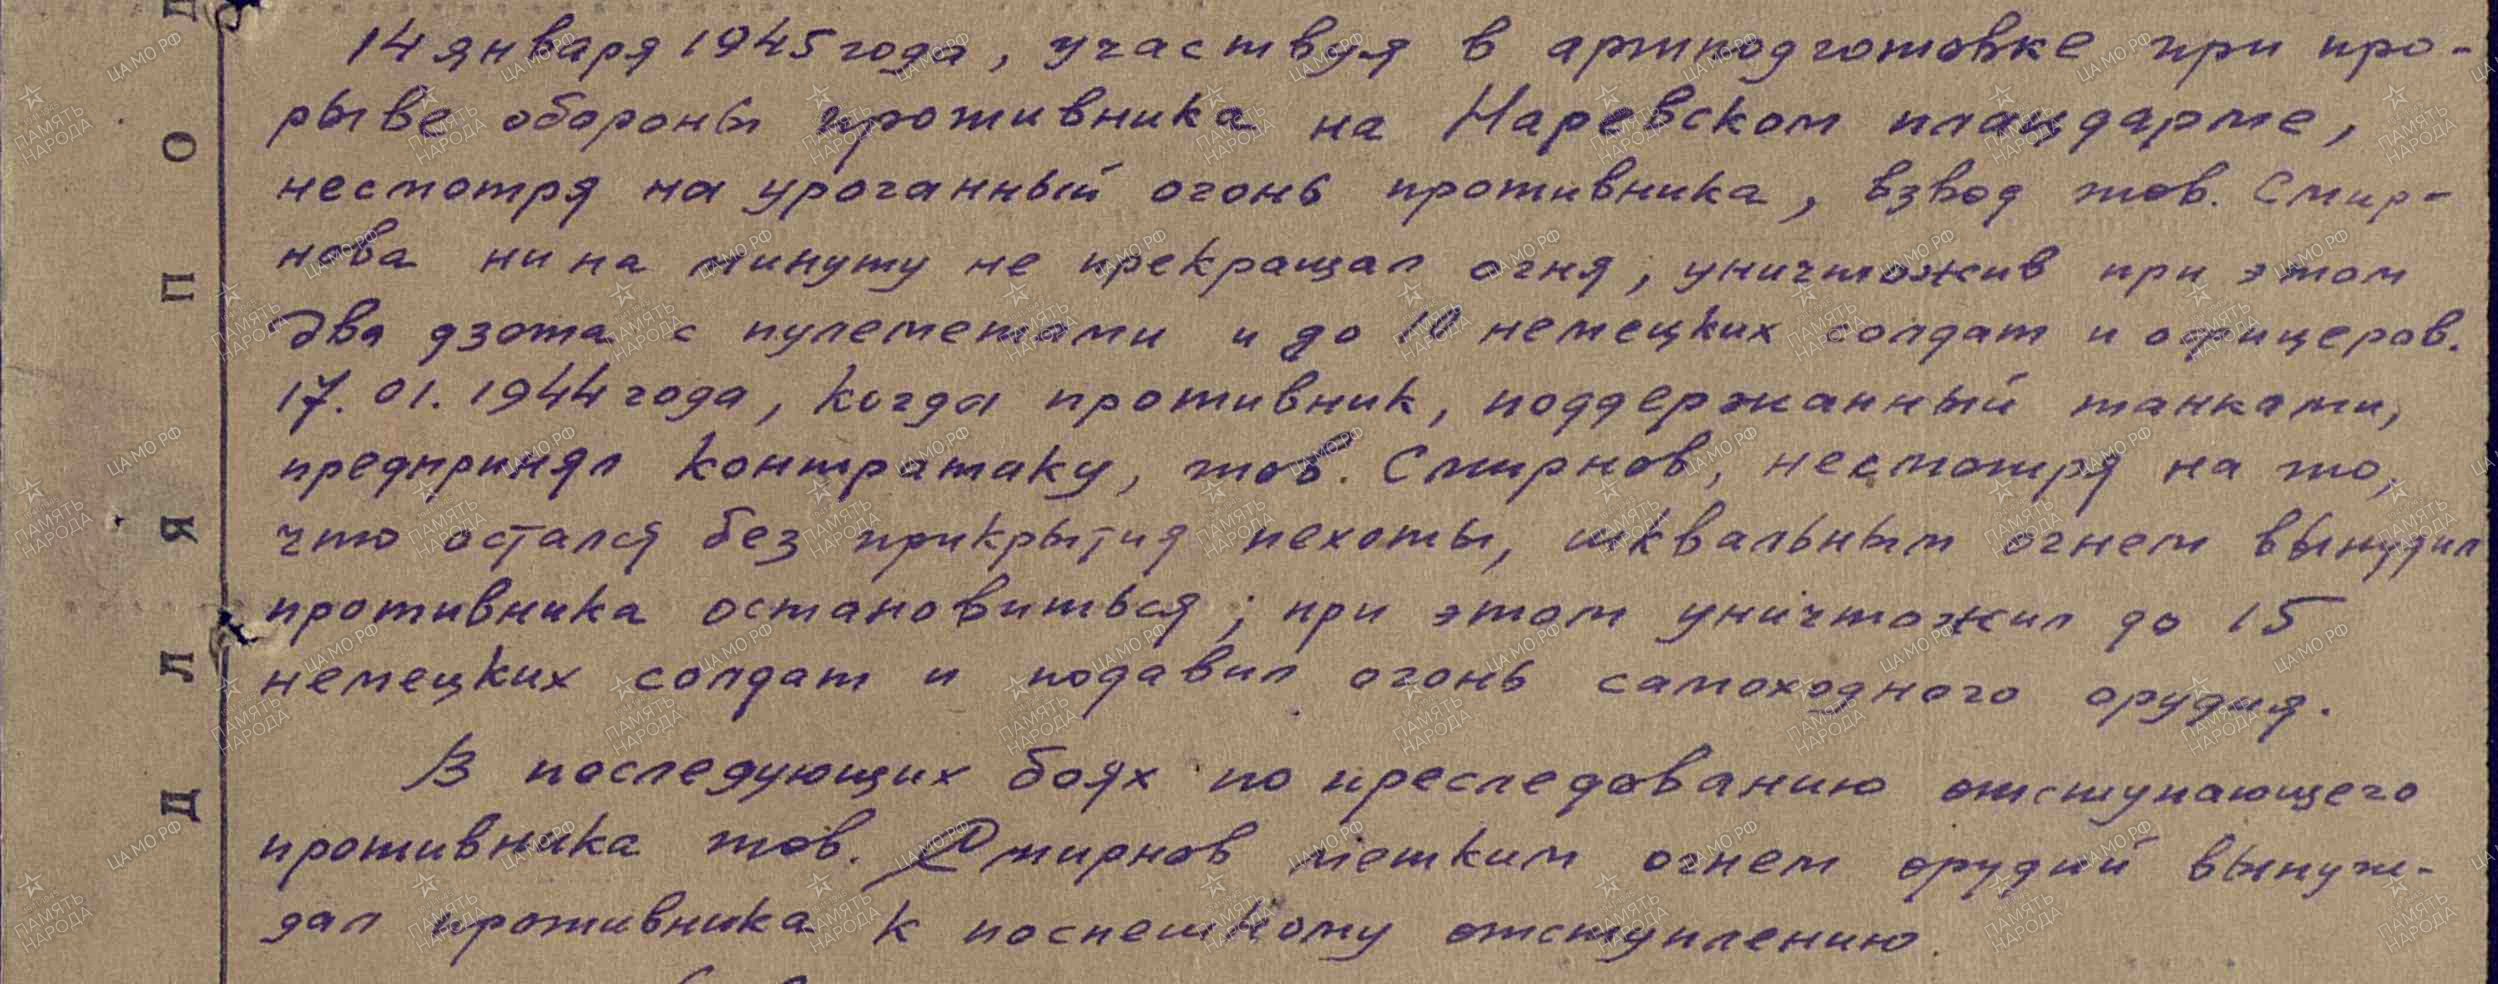 14 января 1945 года, участвуя в артподготовке при про-
рыве обороны противника на Наревском плацдарме,
несмотря на ураганный огонь противника, взвод тов. Смир-
нова ни на минуту не прекращал огня, уничтожив при этом
два дзота с пулеметами и до 10 немецких солдат и офицеров.
17.01.1944 года, когда противник, поддержанный танками,
предпринял контратаку, тов. Смирнов, несмотря на то,
что остался без прикрытия пехоты, шквальным огнем вынудил
противника остановиться; при этом уничтожил до 15
немецких солдат и подавил огонь самоходного орудия.
В последующих боях по преследованию отступающего
противника тов. Смирнов метким огнем орудий вынуж-
дал противника к поспешному отступлению.
Д Л Я П О Д
ЦА МО РФ
ПАМЯТЬ НАРОДА